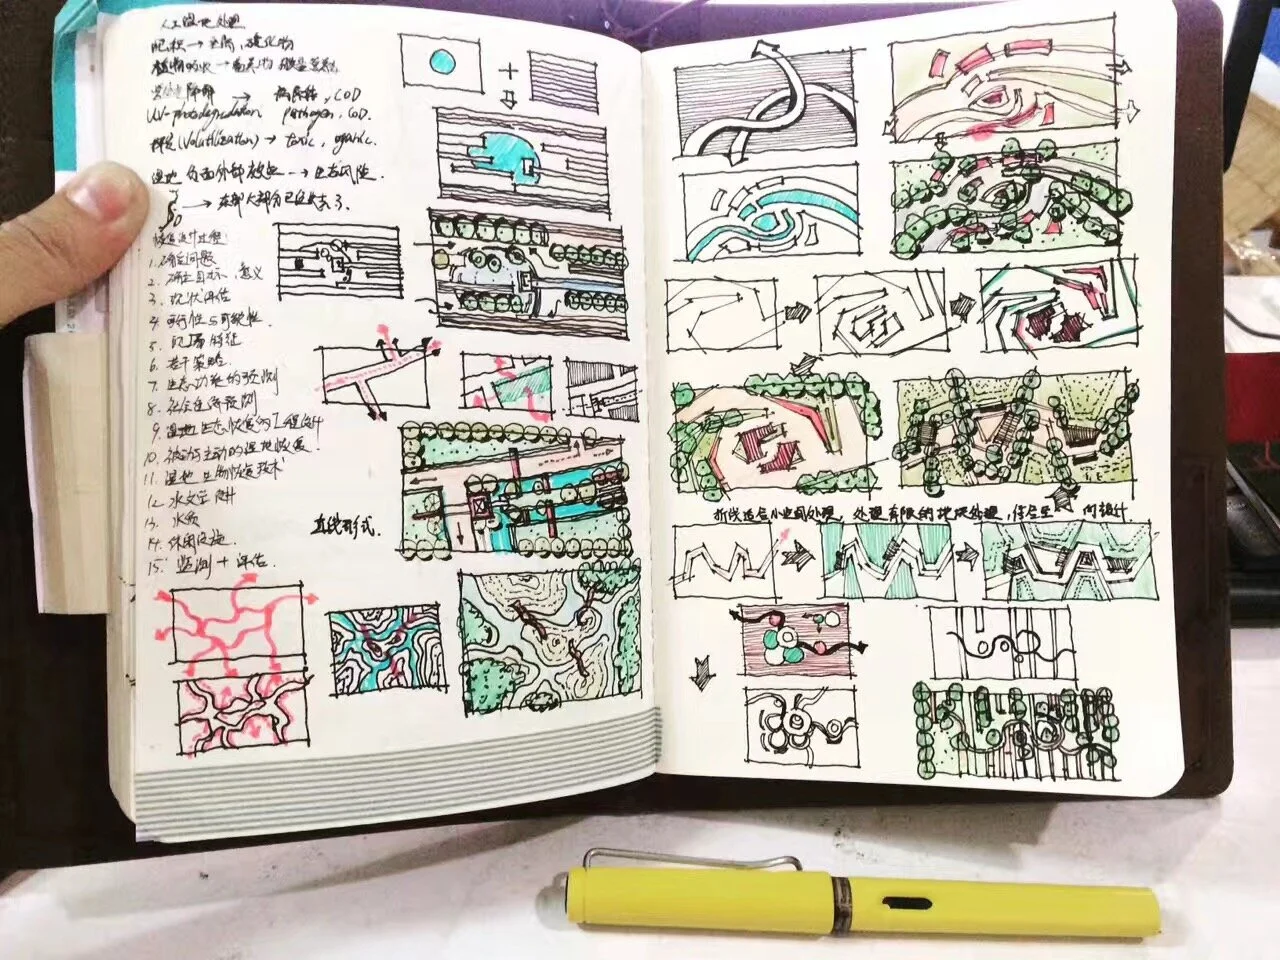 人工湿地处理
沉积→金属,硫化物
植物吸收→
生物降解→ ,COD
UV-photodegradation pathogen, COD.
挥发(Volatilization)→toxic, organic.
湿地负面外部效应→生态风险.
→
恢复设计过程:
1.确定问题
2.确立目标、意义
3.现状评估
4.可行性与可获性.
5.
6.若干策略.
7.生态功能的预测
8.社会经济预测
9.湿地生态恢复的工程设计
10.被动与主动的湿地恢复.
11.湿地生物恢复技术
12.水文
13.水质
14.休闲设施.
15.监测+评估.
直线形式.
折线适合小空间处理,处理有限的地块处理, 向设计.